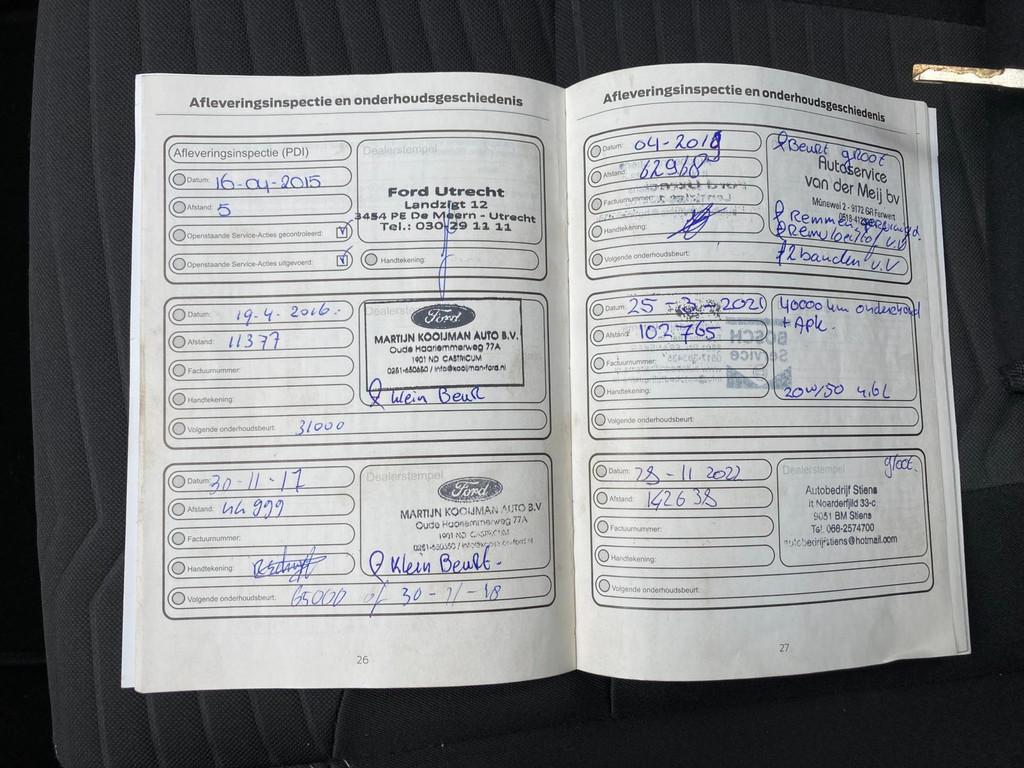 Afleveringsinspectie en onderhoudsgeschiedenis
Afleveringsinspectie (PDI)
Datum: 16-04-2015
Afstand: 5
Openstaande Service-Acties gecontroleerd:
Openstaande Service-Acties uitgevoerd:
Dealerstempel
Ford Utrecht
Landzigt 12
3454 PE De Meern - Utrecht
Tel.: 030-29 11 11
Handtekening:
Datum: 19-4-2016.
Afstand: 11377
Factuurnummer:
Handtekening:
Volgende onderhoudsbeurt: 31000
Dealerstempel
Ford
MARTIJN KOOIJMAN AUTO B.V.
Oude Haarlemmerweg 77A
1901 ND CASTRICUM
0251-650650 / info@kooijman-ford.nl
Klein Beurt
Datum: 30-11-17
Afstand: 44999
Factuurnummer:
Handtekening:
Volgende onderhoudsbeurt: 65000 of 30-11-18
Dealerstempel
Ford
MARTIJN KOOIJMAN AUTO B.V
Oude Haarlemmerweg 77A
1901 ND CASTRICUM
Klein Beurt.
26
Afleveringsinspectie en onderhoudsgeschiedenis
Datum: 04-2019
Afstand: 62968
Factuurnummer:
Handtekening:
Volgende onderhoudsbeurt:
Beurt groot
Autoservice
van der Meij bv
Münewei 2 - 9172 GR Ferwert
Remmen
V.V
2 banden V.V
Datum: 25-3-2021
Afstand: 102765
Factuurnummer:
Handtekening:
Volgende onderhoudsbeurt:
40000 km onderhoud
+ Apk.
BOSCH
Service
20w/50 4.6L
Datum: 29-11 2022
Afstand: 142638
Factuurnummer:
Handtekening:
Volgende onderhoudsbeurt:
Dealerstempel
groot.
Autobedrijf Stiens
It Noarderfjild 33-c
9051 BM Stiens
Tel. 066-2574700
autobedrijfstiens@hotmail.com
27